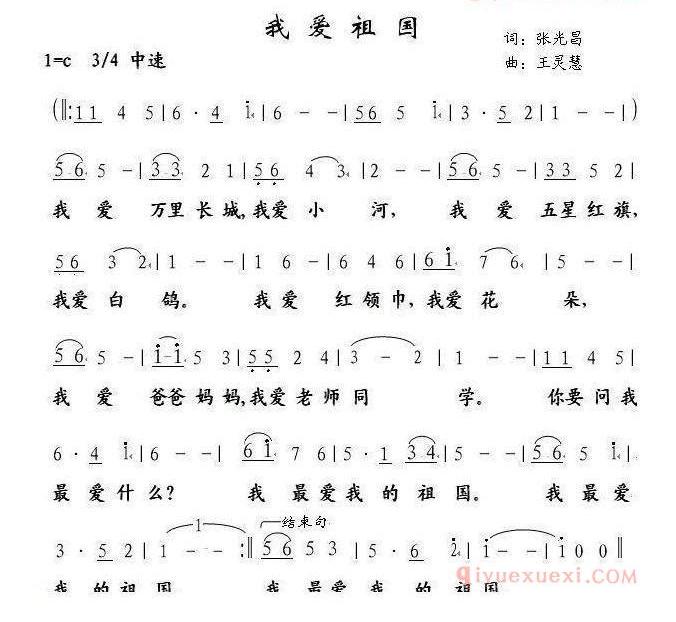 我爱祖国
词：张光昌
1=c 3/4 中速
曲：王灵慧
(‖: 1 1 4 5 | 6 · 4 1 | 6 - - | 5 6 5 1 | 3 · 5 2 | 1 - - | )
5 6 5 - | 3 3 2 1 | 5 6 4 3 | 2 - - | 5 6 5 - | 3 3 5 2 |
我 爱 万里长城,我爱小 河, 我 爱 五星红旗,
5 6 3 2 | 1 - - | 1 6 - | 6 4 6 | 6 1 7 6 | 5 - - |
我爱白 鸽。 我爱 红领巾,我爱花 朵,
5 6 5 - | 1 - 1 5 3 | 5 5 2 4 | 3 - 2 | 1 - - | 1 1 4 5 |
我 爱 爸爸妈妈,我爱老师同 学。 你要问我
6 · 4 1 | 6 - - | 6 1 7 6 | 5 · 1 3 4 | 5 - - | 5 6 5 1 |
最爱什么? 我 最爱我的祖国。 我最爱
1 结束句
3 · 5 2 | 1 - - :‖ 5 6 5 3 | 5 · 6 2 | 1 - - | 1 0 0 ‖
qiyuexuexi.com
我 的祖国 我 最爱 我 的 祖国